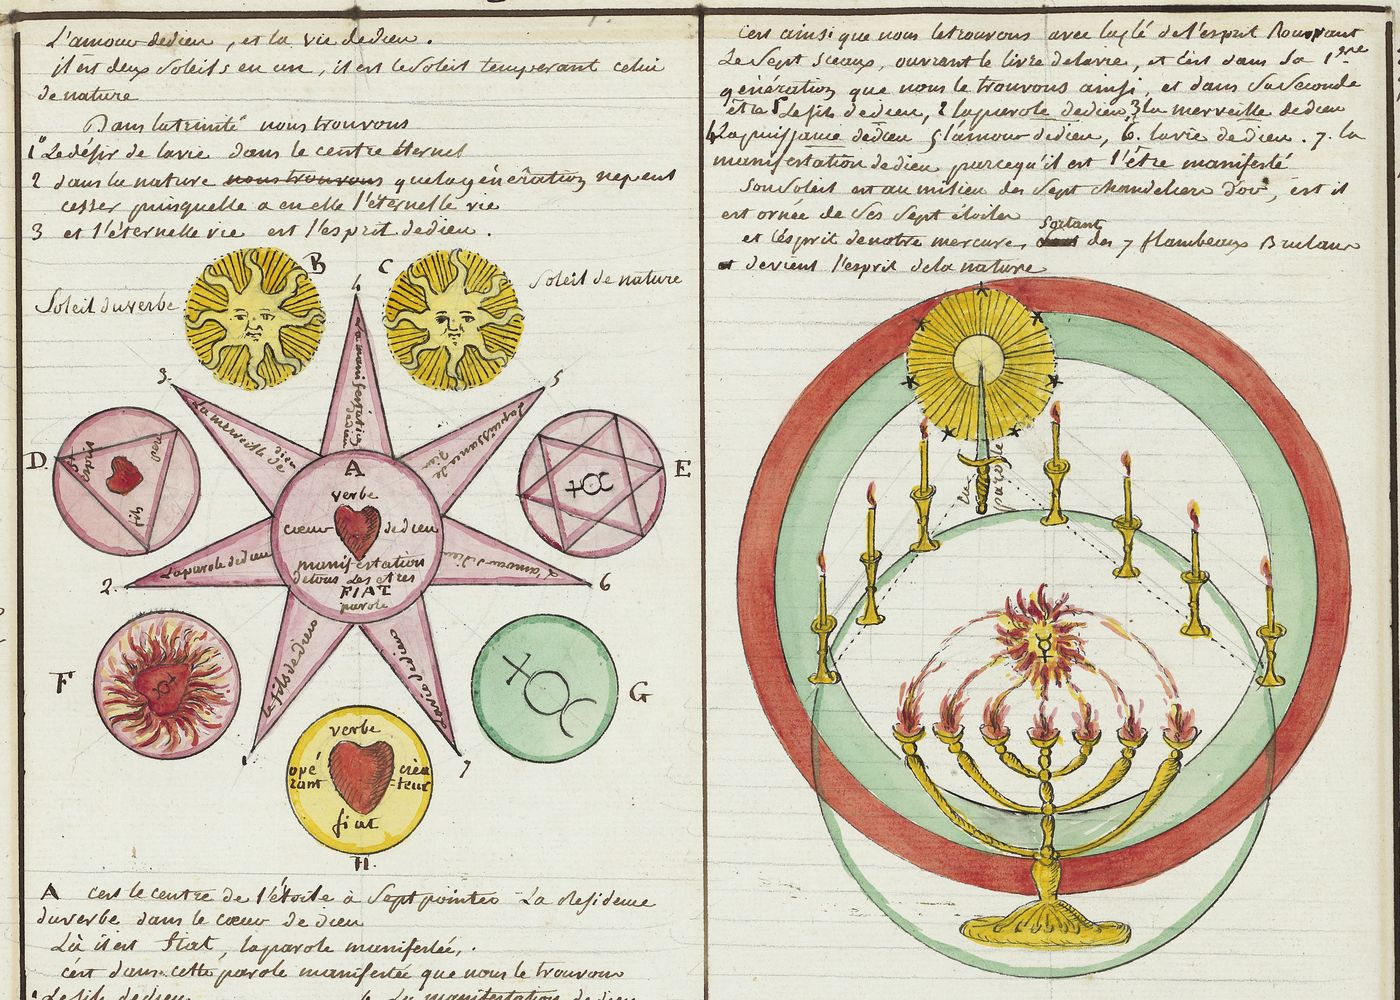 L'amour dedieu, et la vie dedieu.
il est deux Soleils en un, il est le Soleil temperant celui
de nature
Dans latrinité nous trouvons
1° Ledésir de lavie dans le centre éternel
2 dans la nature nous trouvons quelagénération nepeut
cesser puisquelle a en elle l'éternelle vie
3 et l'éternelle vie est l'esprit dedieu.
B C
Soleil duverbe
Soleil de nature
4
la manifestation dedieu
3.
La merveille de dieu
5
Lapuissance de dieu
D.
père
fils
esprit
E
A
verbe
cœur dedieu
manifestation
detous Les etres
FIAT
parole
2.
Laparole dedieu
6
L'amour dedieu
F
G
1
le fils dedieu
7
lavie dedieu
verbe
opé
rant
créa
-teur
fiat
H.
A cest le centre de l'étoile à Sept pointes La Residence
duverbe dans le cœur de dieu
Là il est fiat, laparole manifestée,.
c'est dans cette parole manifestée que nous le trouvons
Le fils dedieu La manifestation dedieu
cest ainsi que nous letrouvons avec laclé de l'esprit Rompant
Le Sept Sceaux, ouvrant le livre delavie, et c'est dans Sa 1ere
génération que nous le trouvons ainsi, et dans SaSeconde
être 1 Lefils dedieu, 2 laparole dedieu, 3 la merveille dedieu
4 Lapuissance dedieu 5 l'amour dedieu, 6. lavie dedieu. 7. la
manifestation dedieu parcequ'il est l'être manifesté
Son Soleil est au milieu des Sept chandeliers d'or, est il
est ornée de Ses Sept étoiles
Sortant
et l'ésprit denotre mercure, des 7 flambeaux Brulans
et devient l'esprit dela nature
la parole